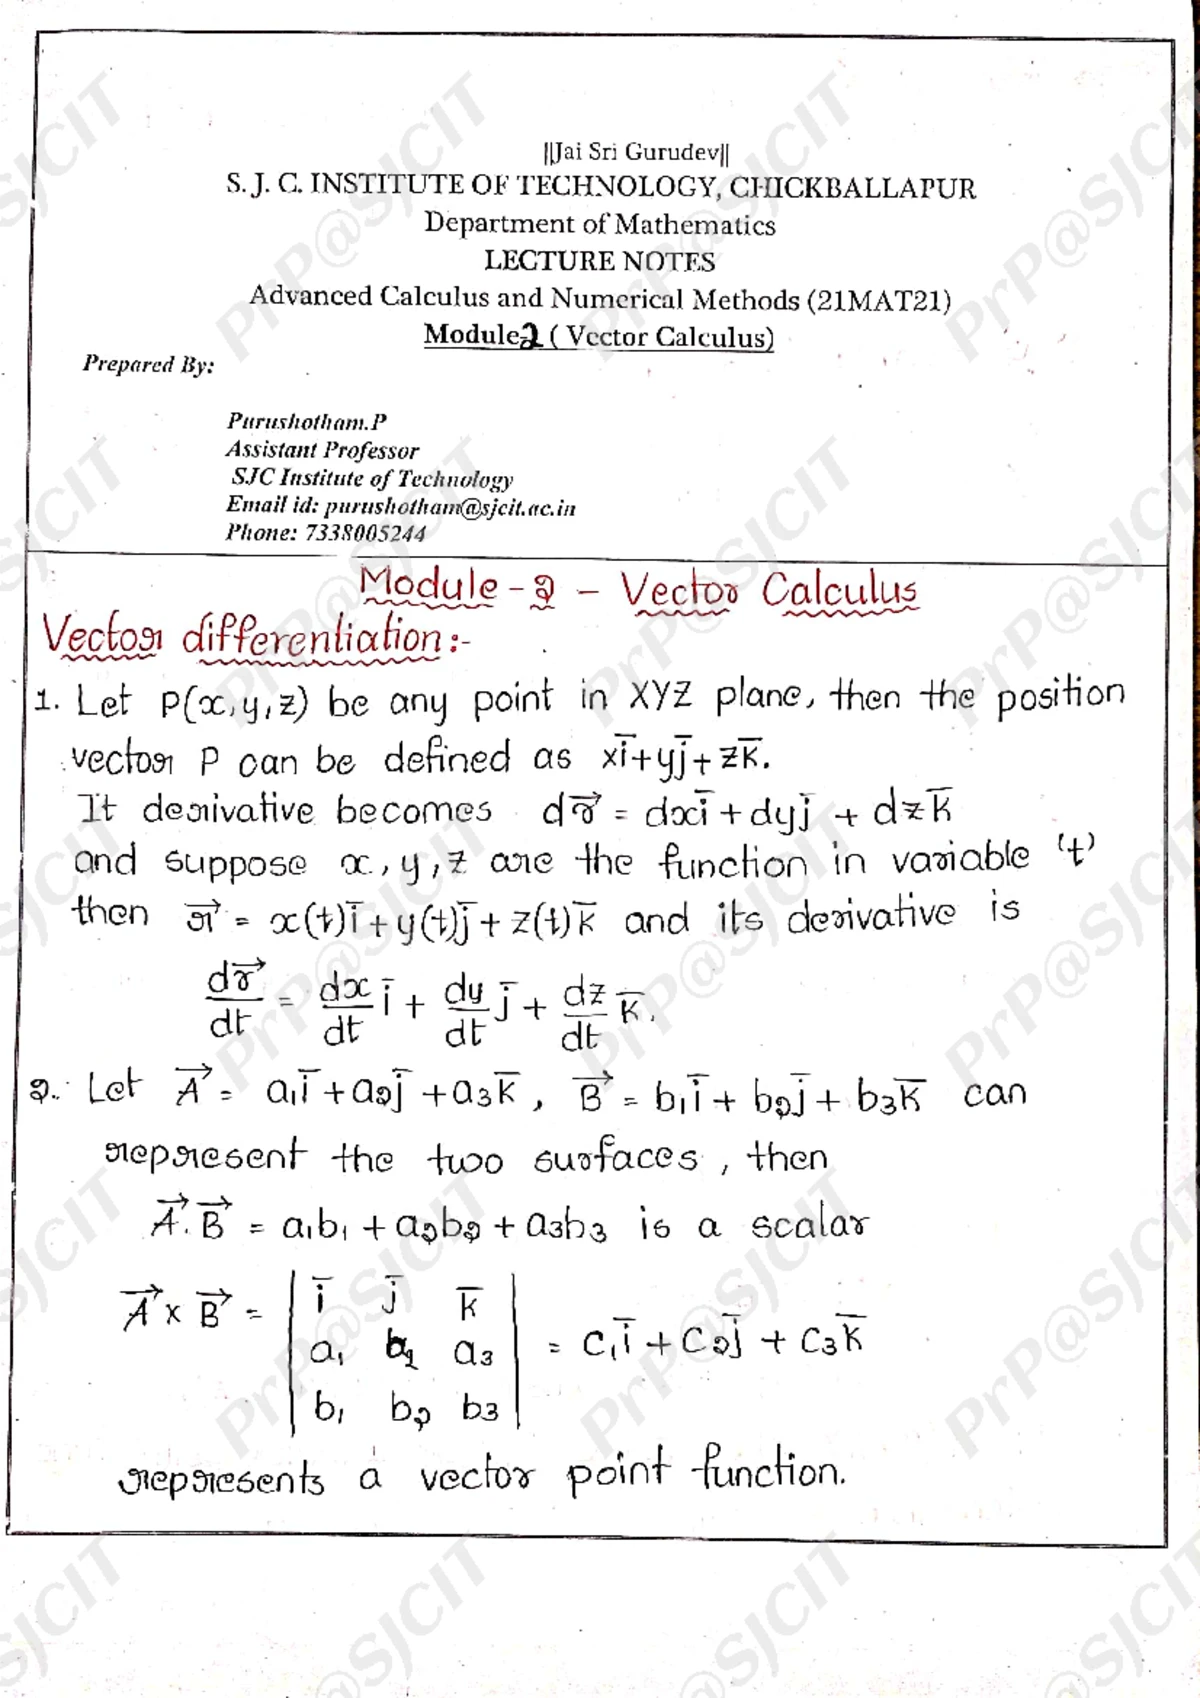 ||Jai Sri Gurudev||
S. J. C. INSTITUTE OF TECHNOLOGY, CHICKBALLAPUR
Department of Mathematics
LECTURE NOTES
Advanced Calculus and Numerical Methods (21MAT21)
Module2 ( Vector Calculus)
Prepared By:
Purushotham.P
Assistant Professor
SJC Institute of Technology
Email id: purushotham@sjcit.ac.in
Phone: 7338005244
Module - 2 - Vector Calculus
Vector differentiation:-
1. Let P(x,y,z) be any point in XYZ plane, then the position
vector P can be defined as xi̅+yj̅+zk̅.
It derivative becomes dr⃗ = dxi̅+dyj̅ + dzk̅
and suppose x,y,z are the function in variable 't'
then r⃗ = x(t)i̅+y(t)j̅+z(t)k̅ and its derivative is
dr⃗/dt = dx/dt i̅ + dy/dt j̅ + dz/dt k̅.
2. Let A⃗ = a₁i̅+a₂j̅+a₃k̅, B⃗ = b₁i̅+b₂j̅+b₃k̅ can
represent the two surfaces, then
A⃗.B⃗ = a₁b₁+a₂b₂+a₃b₃ is a scalar
A⃗×B⃗ = | i̅ j̅ k̅ |
| a₁ a₂ a₃ | = c₁i̅+c₂j̅ + c₃k̅
| b₁ b₂ b₃ |
represents a vector point function.
PrP@SJCIT